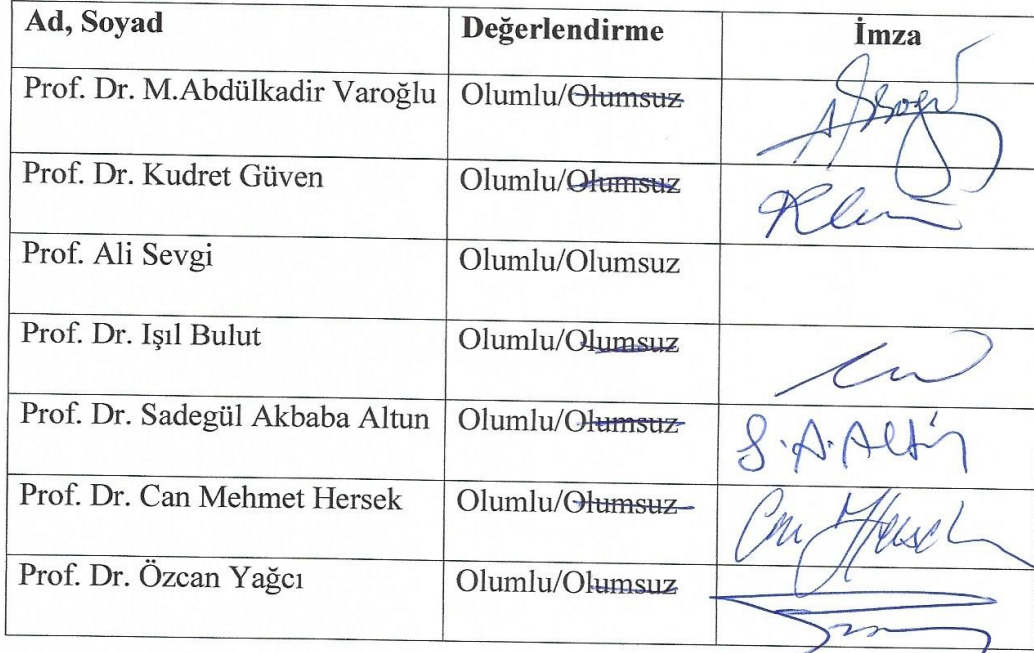 Ad, Soyad Değerlendirme İmza
Prof. Dr. M.Abdülkadir Varoğlu Olumlu/Olumsuz
Prof. Dr. Kudret Güven Olumlu/Olumsuz
Prof. Ali Sevgi Olumlu/Olumsuz
Prof. Dr. Işıl Bulut Olumlu/Olumsuz
Prof. Dr. Sadegül Akbaba Altun Olumlu/Olumsuz S.A.Altun
Prof. Dr. Can Mehmet Hersek Olumlu/Olumsuz Can Hersek
Prof. Dr. Özcan Yağcı Olumlu/Olumsuz